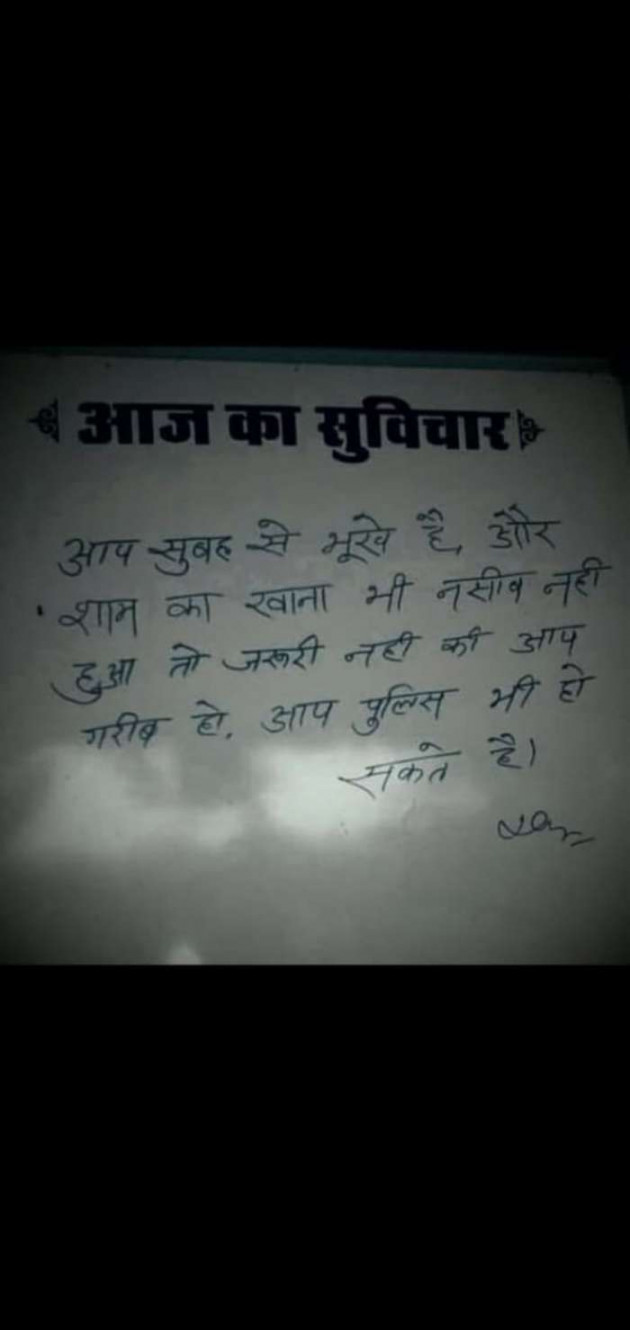 आज का सुविचार
आप सुबह से भूखे है, और
शाम का खाना भी नसीब नही
हुआ तो जरूरी नही की आप
गरीब हो. आप पुलिस भी हो
सकते है।